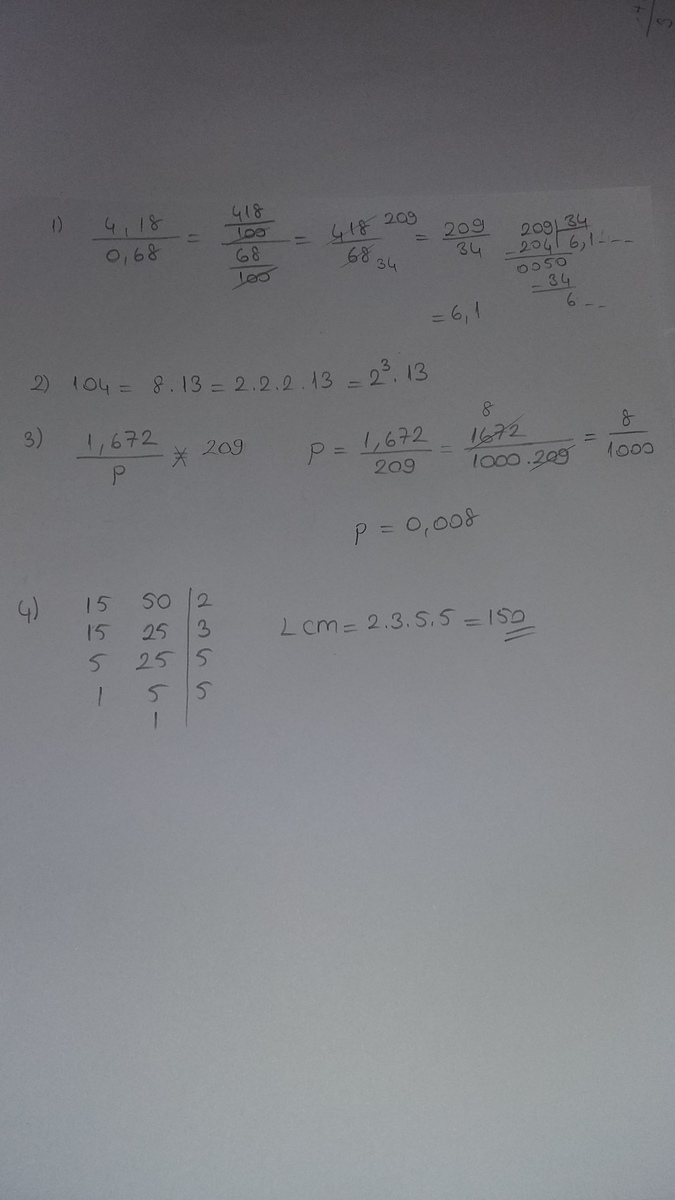 1) 4,18/0,68 = (418/100)/(68/100) = 418/68 209 34 = 209/34 = 6,1
209 | 34
- 204 6,1 ...
0050
- 34
6 ..
2) 104 = 8.13 = 2.2.2.13 = 2³.13
3) 1,672/P * 209 P = 1,672/209 = 1672/1000.209 8 = 8/1000
P = 0,008
4) 15 50 | 2
15 25 | 3 Lcm = 2.3.5.5 = 150
5 25 | 5
1 5 | 5
1